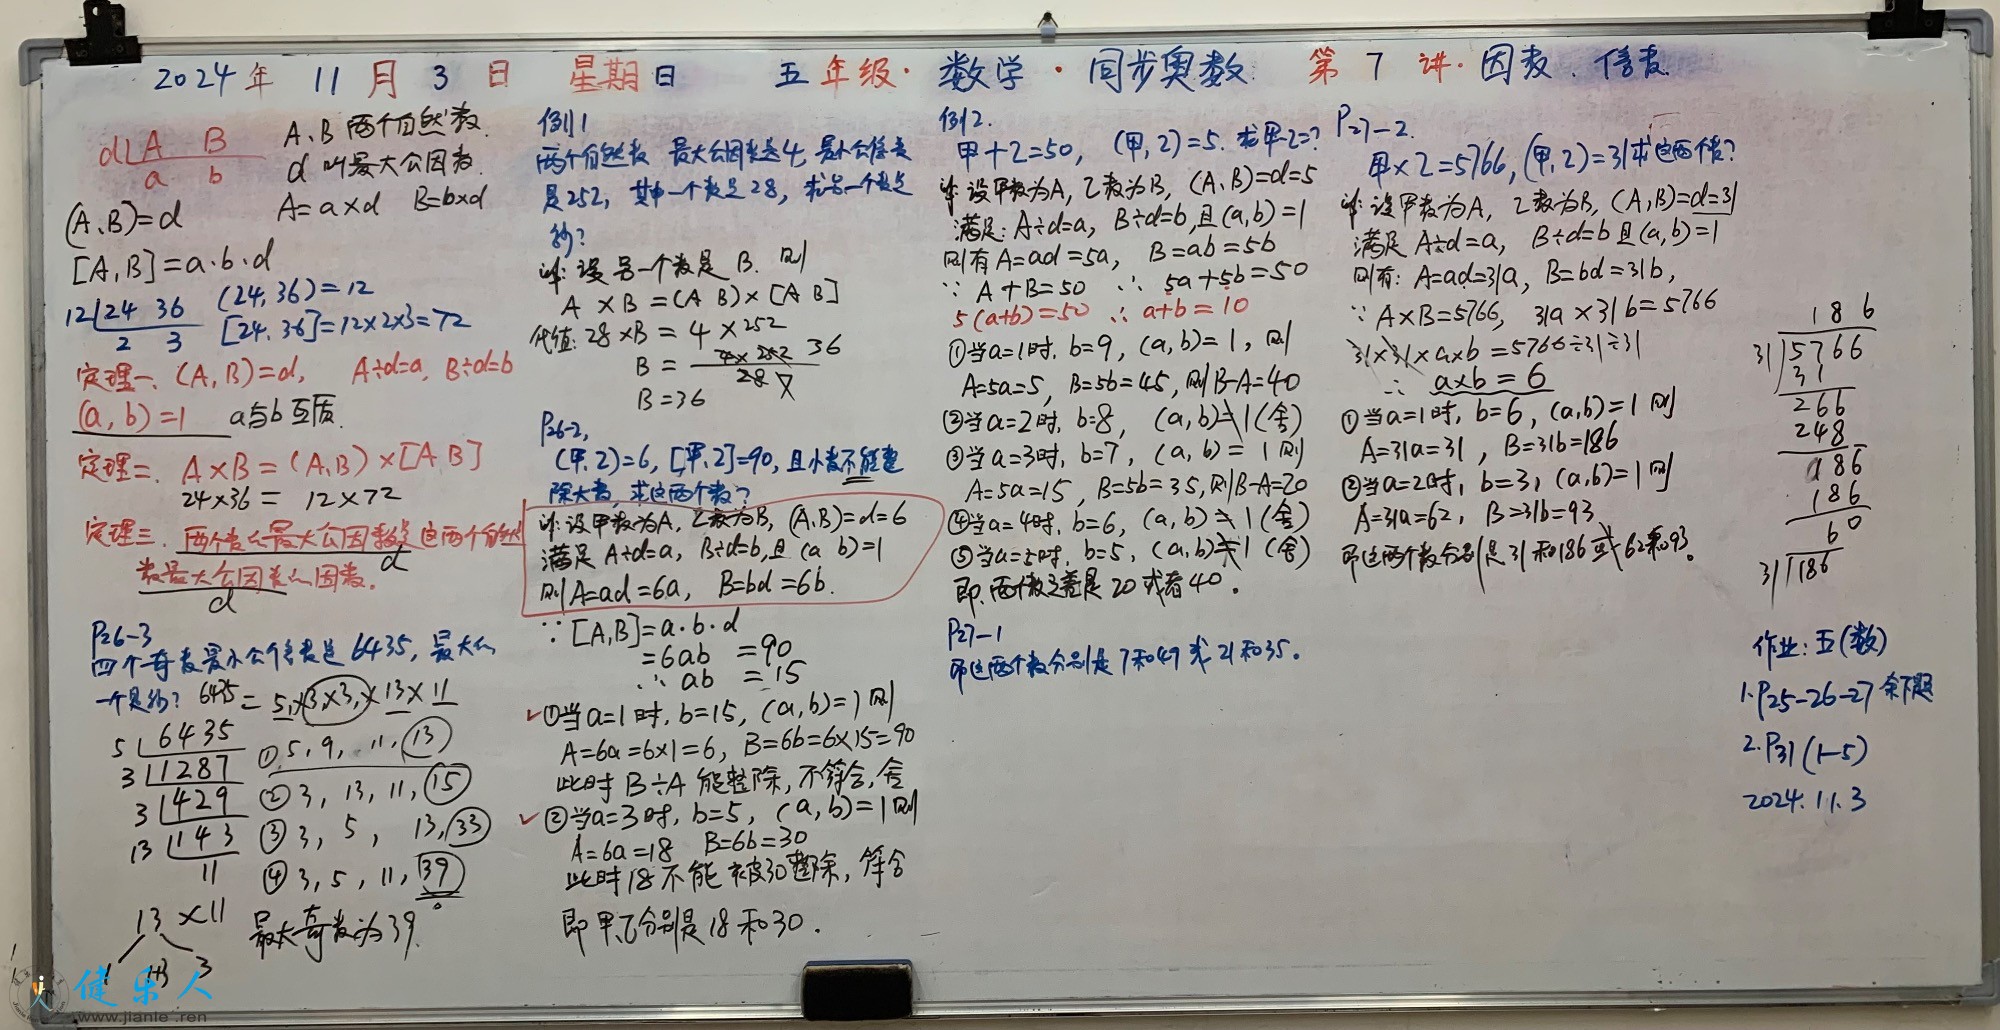 2024年 11月 3日 星期日 五年级·数学·同步奥数 第7讲·因数、倍数
d A B
a b
A、B两个自然数.
d 叫最大公因数.
A=a×d B=b×d
(A、B)=d
[A,B]=a·b·d
12 24 36
2 3
(24,36)=12
[24,36]=12×2×3=72
定理一、(A,B)=d, A÷d=a, B÷d=b
(a,b)=1 a与b互质.
定理二、A×B=(A,B)×[A,B]
24×36= 12×72
定理三、两个数的最大公因数是这两个自然
d
数最大公因数的因数.
d
P26-3
四个奇数最小公倍数是6435,最大的
一个是多少? 6435=5×3×3×13×11
5 6435
3 1287
3 429
13 143
11
①5,9,11,13
②3,13,11,15
③3,5,13,33
④3,5,11,39
13×11
最大奇数为39.
例1
两个自然数 最大公因数是4,最小公倍数
是252,其中一个数是28,求另一个数是
多少?
解:设另一个数是B.则
A×B=(A B)×[A B]
代值:28×B=4×252
B= 4×252 36
28 7
B=36
P26-2,
(甲,乙)=6,[甲,乙]=90,且小数不能整
除大数,求这两个数?
解:设甲数为A,乙数为B,(A,B)=d=6
满足A÷d=a, B÷d=b,且(a b)=1
则A=ad=6a, B=bd=6b.
∵[A,B]=a·b·d
=6ab =90
∴ab =15
✓①当a=1时,b=15,(a,b)=1则
A=6a=6×1=6,B=6b=6×15=90
此时B÷A能整除,不符合,舍
✓②当a=3时,b=5,(a,b)=1则
A=6a=18 B=6b=30
此时18不能被30整除,符合
即甲、乙分别是18和30.
例2.
甲+乙=50, (甲,乙)=5.求甲-乙=?
解:设甲数为A,乙数为B,(A、B)=d=5
满足:A÷d=a,B÷d=b,且(a,b)=1
则有A=ad=5a, B=ab=5b
∵A+B=50 ∴5a+5b=50
5(a+b)=50 ∴a+b=10
①当a=1时,b=9,(a,b)=1,则
A=5a=5,B=5b=45,则B-A=40
②当a=2时,b=8,(a,b)≠1(舍)
③当a=3时,b=7,(a,b)=1则
A=5a=15,B=5b=35,则B-A=20
④当a=4时,b=6,(a,b)≠1(舍)
⑤当a=5时,b=5,(a,b)≠1(舍)
即,两个数之差是20或者40.
P27-1
即这两个数分别是7和49或21和35.
P27-2.
甲×乙=5766,(甲,乙)=31求这两个数?
解:设甲数为A,乙数为B,(A,B)=d=31
满足A÷d=a, B÷d=b且(a,b)=1
则有:A=ad=31a,B=bd=31b,
∵A×B=5766, 31a×31b=5766
31×31×a×b=5766÷31÷31
∴ a×b=6
①当a=1时,b=6,(a,b)=1则
A=31a=31,B=31b=186
②当a=2时,b=3,(a,b)=1则
A=31a=62,B=31b=93
即这两个数分别是31和186或62和93.
186
31 5766
31
266
248
186
186
0
6
31 186
作业:五(数)
1.P25-26-27余下题
2.P31(1-5)
2024.11.3
健乐人
www.jianle.ren